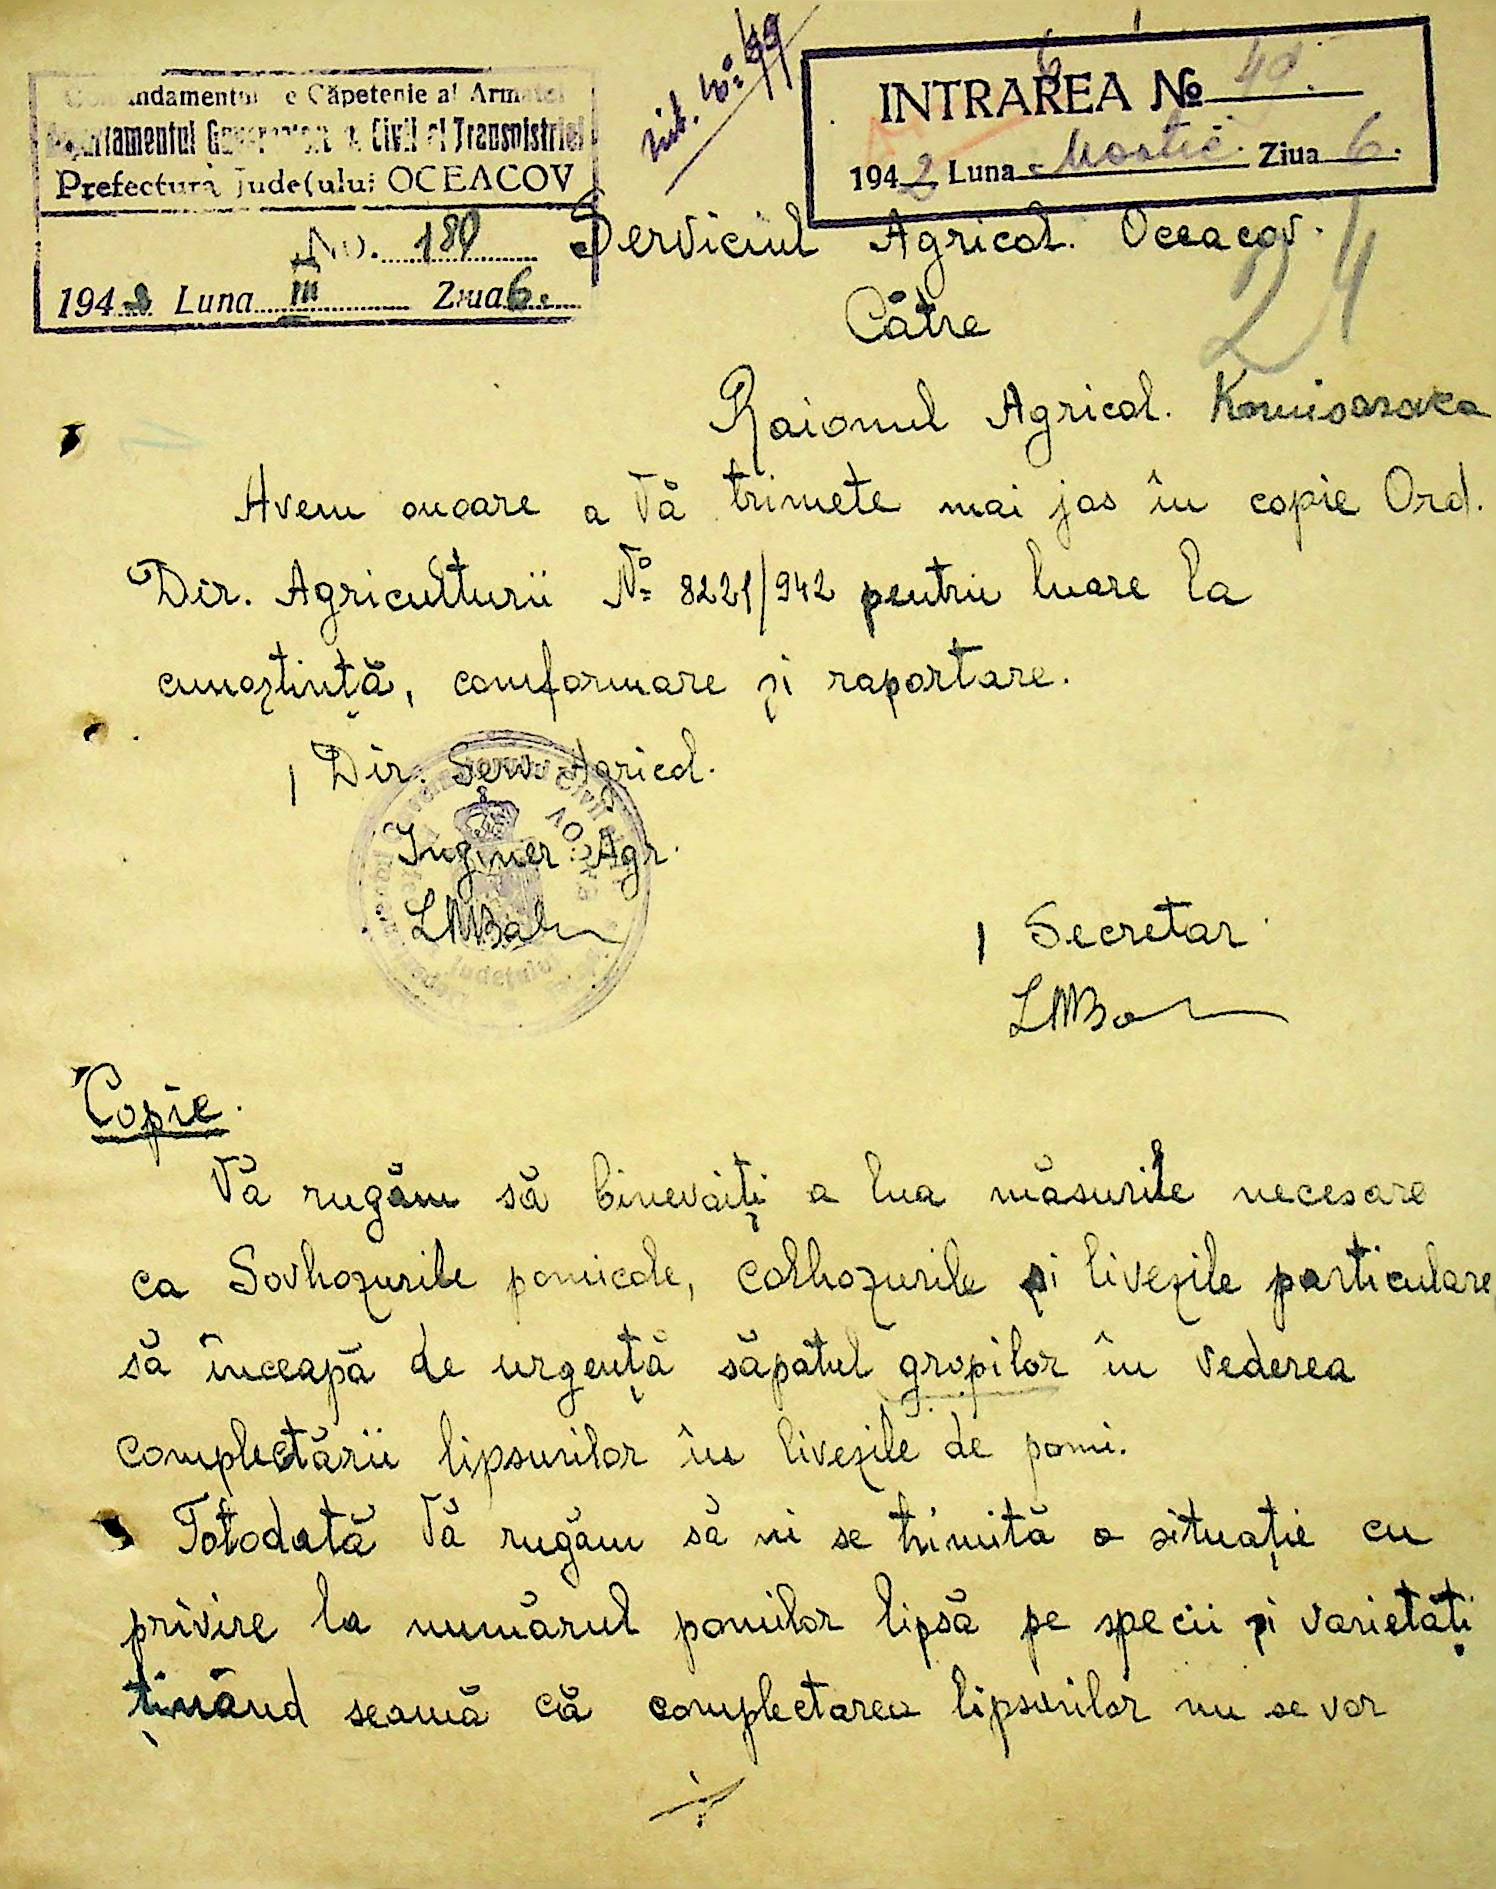 Comandamentul de Căpetenie al Armatei
Departamentul Guvernământ Civil al Transnistriei
Prefectura Judeţului OCEACOV
No. 180
1942 Luna III Ziua 6.
No 49
INTRAREA No 40.
1942 Luna Martie Ziua 6.
24
Serviciul Agricol. Oceacov.
Către
Raionul Agricol. Komisarovca
Avem onoare a Vă trimete mai jos în copie Ord.
Dir. Agriculturii No 8221/942 pentru luare la
cunoştinţă, comformare şi raportare.
/ Dir. Serv. Agricol.
Inginer Agr.
/ Secretar
Copie.
Vă rugăm să binevoiţi a lua măsurile necesare
ca Sovhozurile pomicole, colhozurile şi livezile particulare,
să înceapă de urgenţă săpatul gropilor în vederea
complectării lipsurilor în livezile de pomi.
Totodată Vă rugăm să ni se trimită o situaţie cu
privire la numărul pomilor lipsă pe specii şi varietăţi
ţinând seamă că complectarea lipsurilor nu se vor